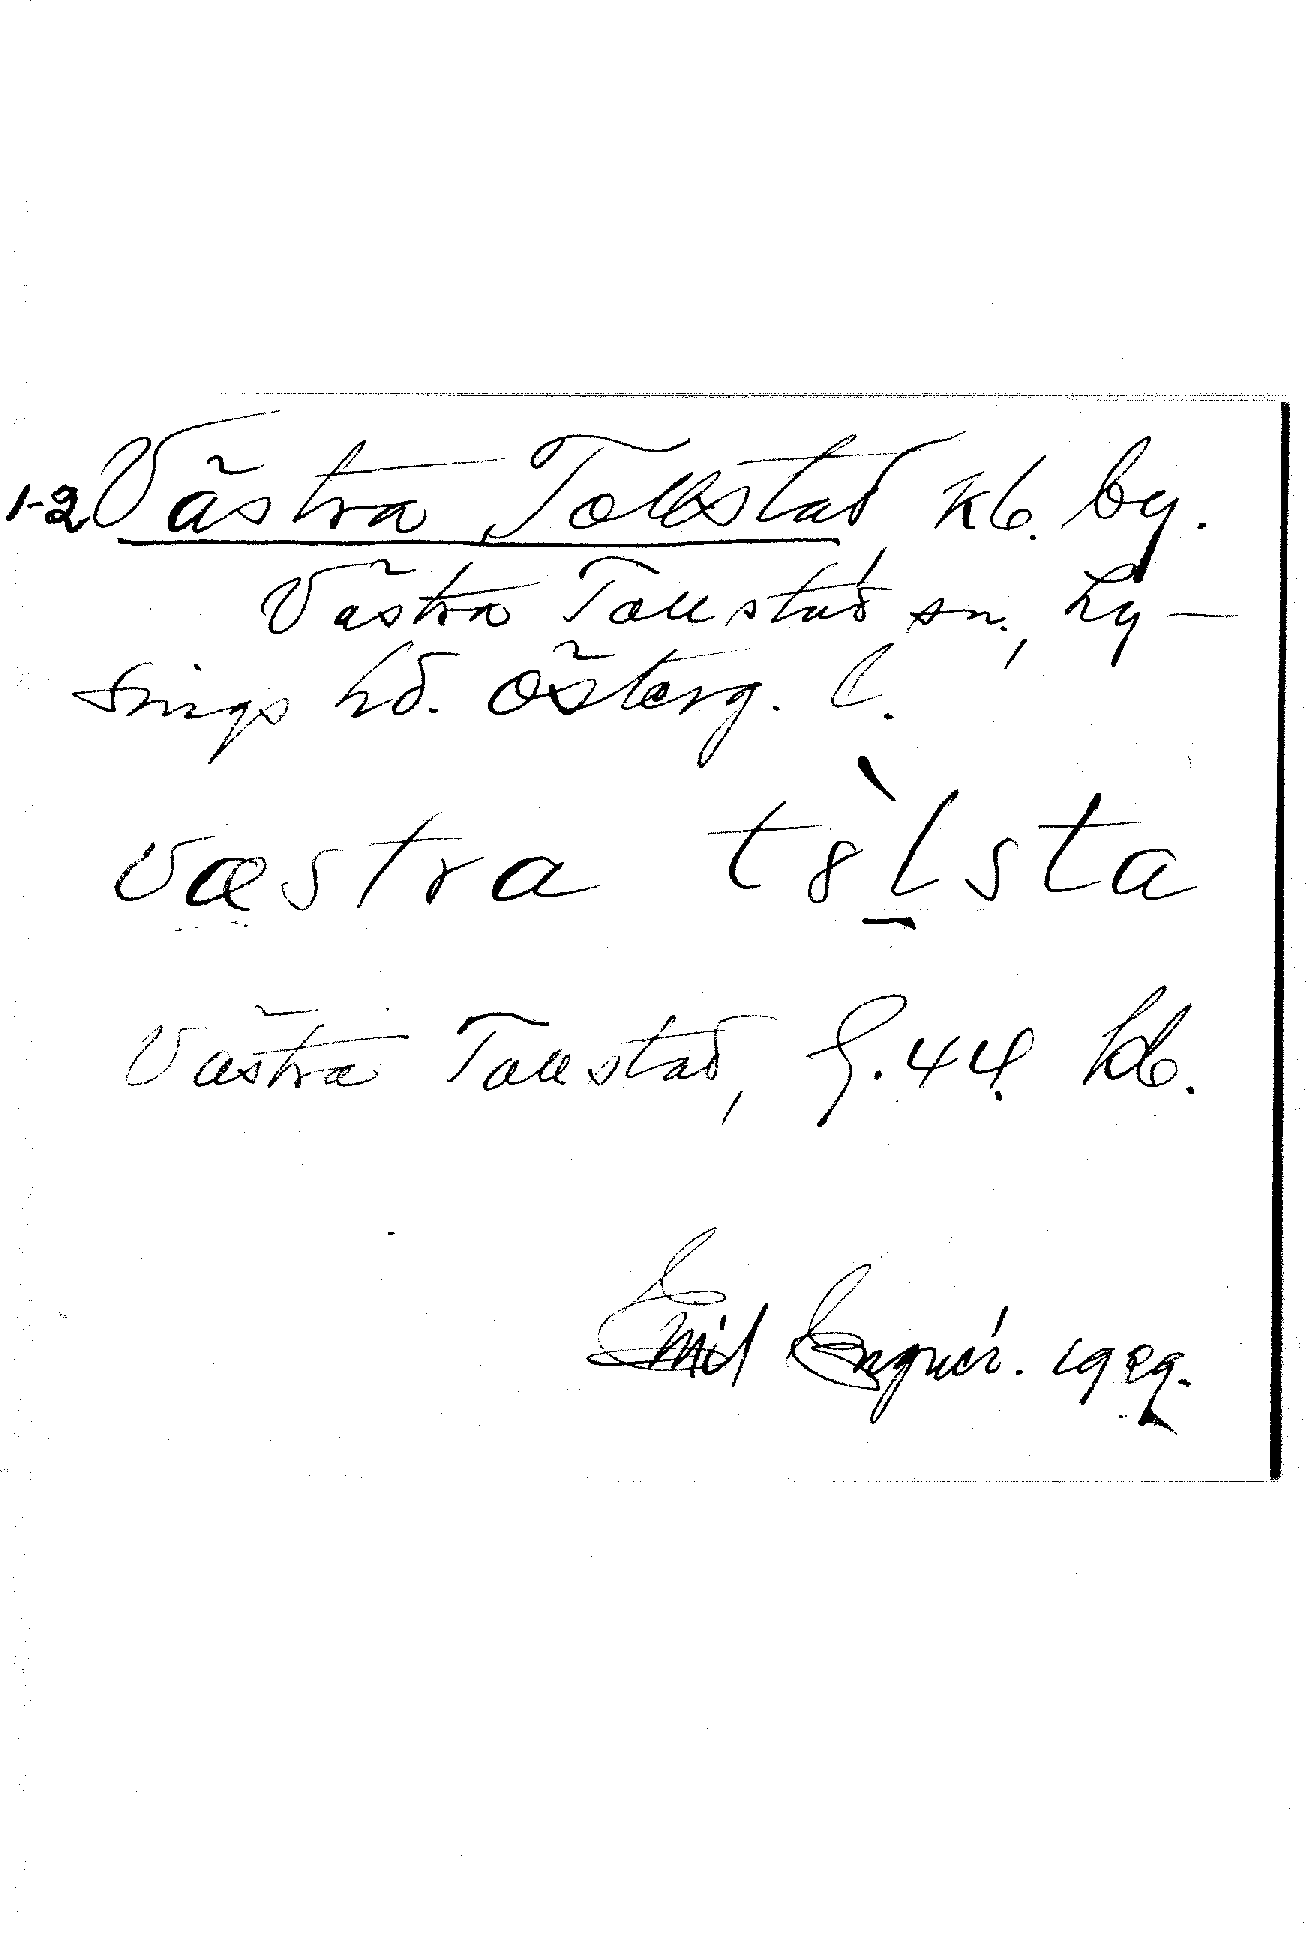 1-2 Västra Tollstad kb. by.
Västra Tollstad sn., Ly-
sings hd. Österg. l.
væstra t8̀l̠sta
Västra Tollstad, G.44. kb.
Emil Engnér. 1929.